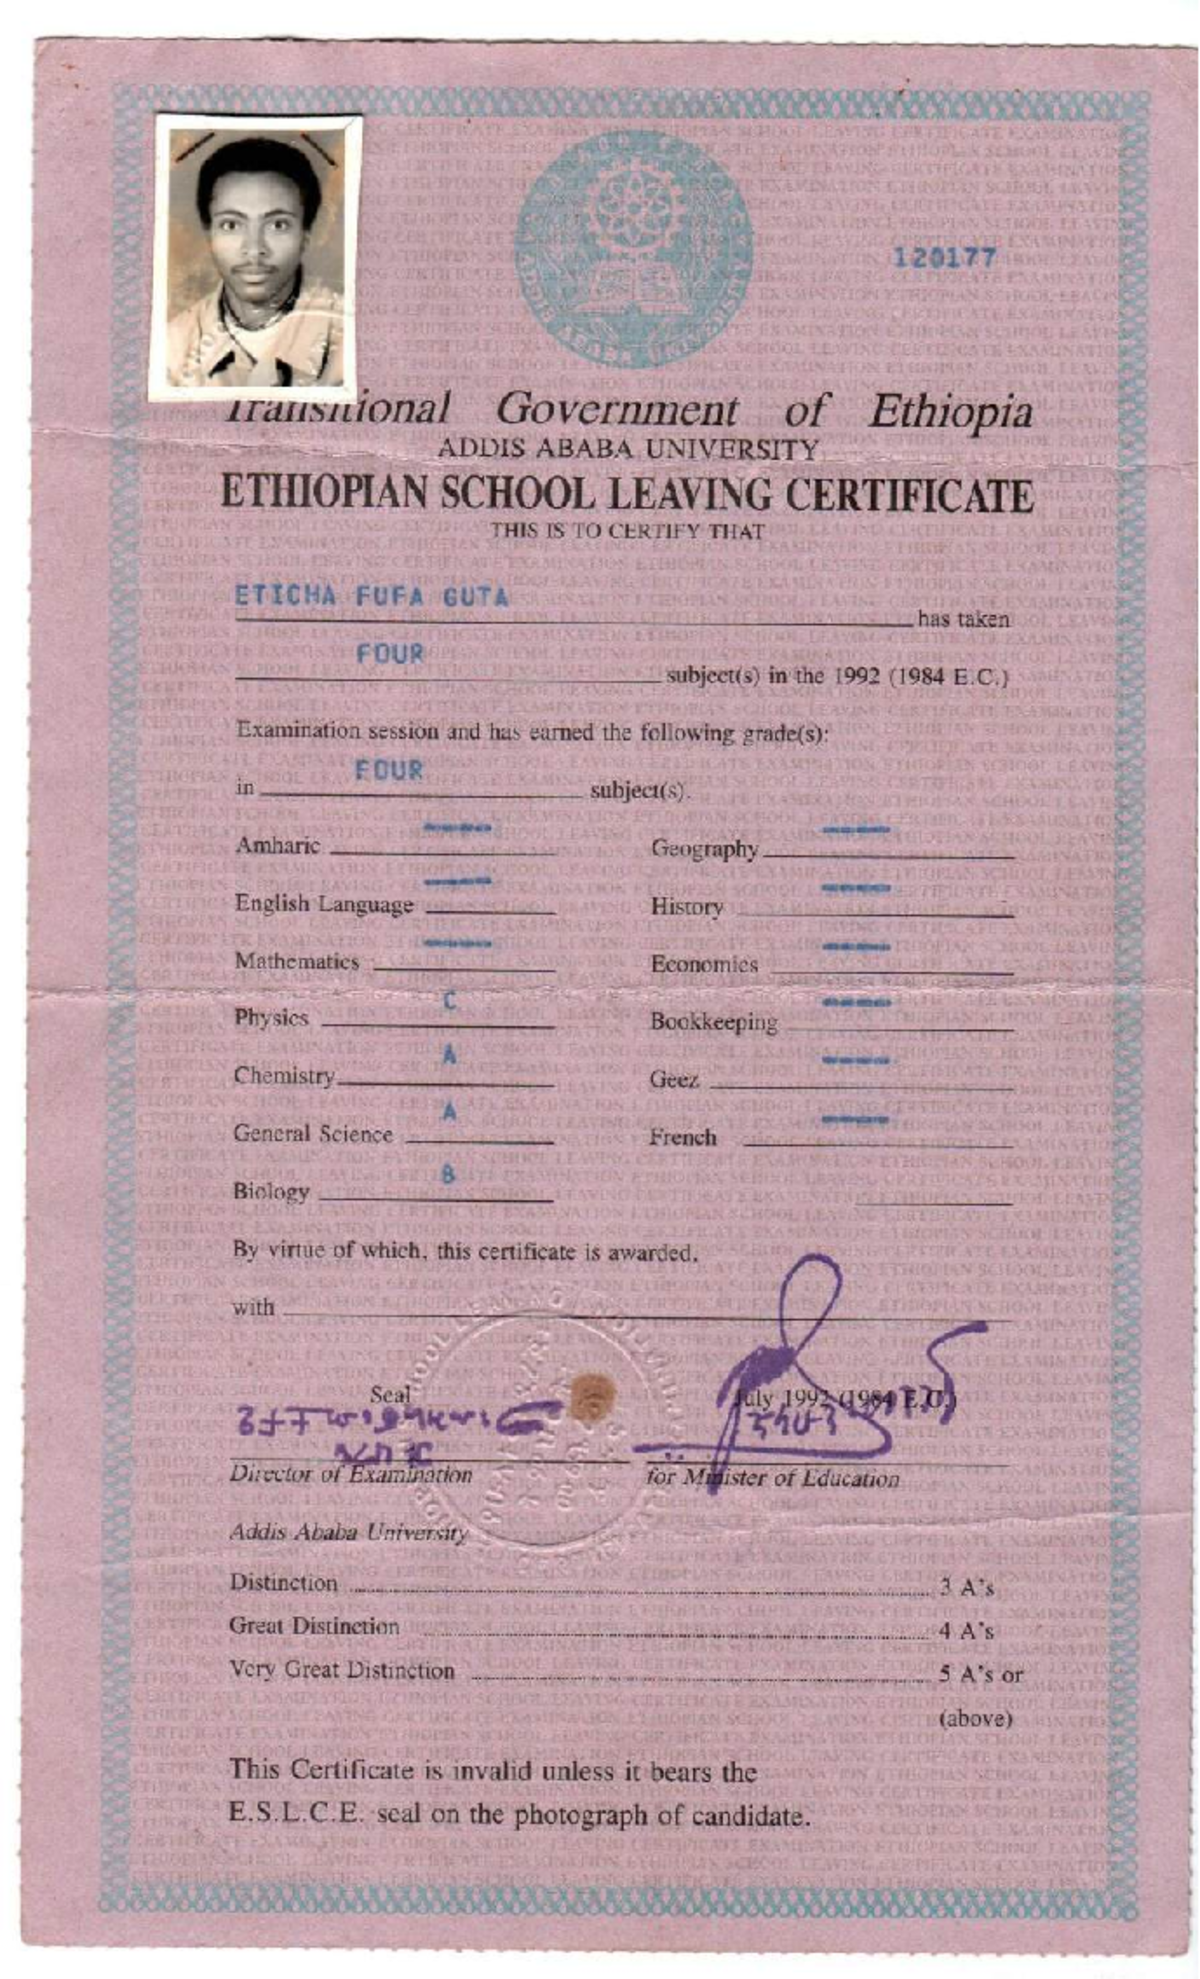 120177
Transitional Government of Ethiopia
ADDIS ABABA UNIVERSITY
ETHIOPIAN SCHOOL LEAVING CERTIFICATE
THIS IS TO CERTIFY THAT
ETICHA FUFA GUTA has taken
FOUR subject(s) in the 1992 (1984 E.C.)
Examination session and has earned the following grade(s):
in FOUR subject(s).
Amharic ---- Geography ----
English Language ---- History ----
Mathematics ---- Economics ----
Physics C Bookkeeping ----
Chemistry A Geez ----
General Science A French ----
Biology B
By virtue of which, this certificate is awarded.
with
Seal July 1992 (1984 E.C.)
Director of Examination for Minister of Education
Addis Ababa University
Distinction 3 A's
Great Distinction 4 A's
Very Great Distinction 5 A's or
(above)
This Certificate is invalid unless it bears the
E.S.L.C.E. seal on the photograph of candidate.